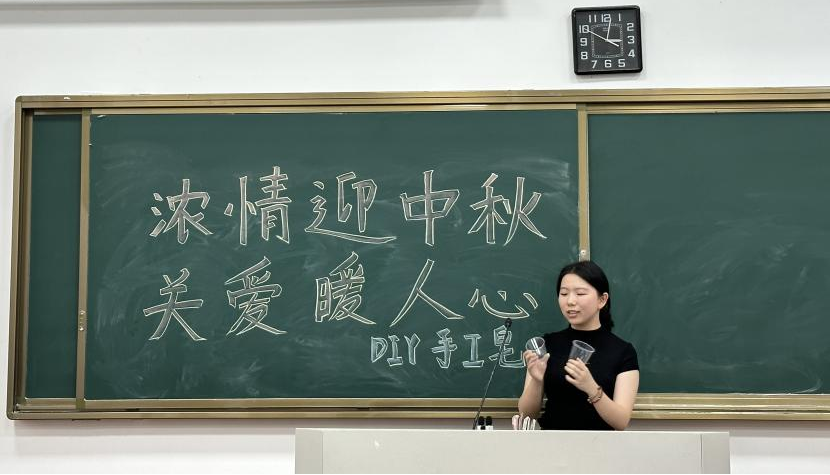 浓情迎中秋
关爱暖人心
DIY手工皂
11 12 1
10 2
9 3
8 4
7 6 5